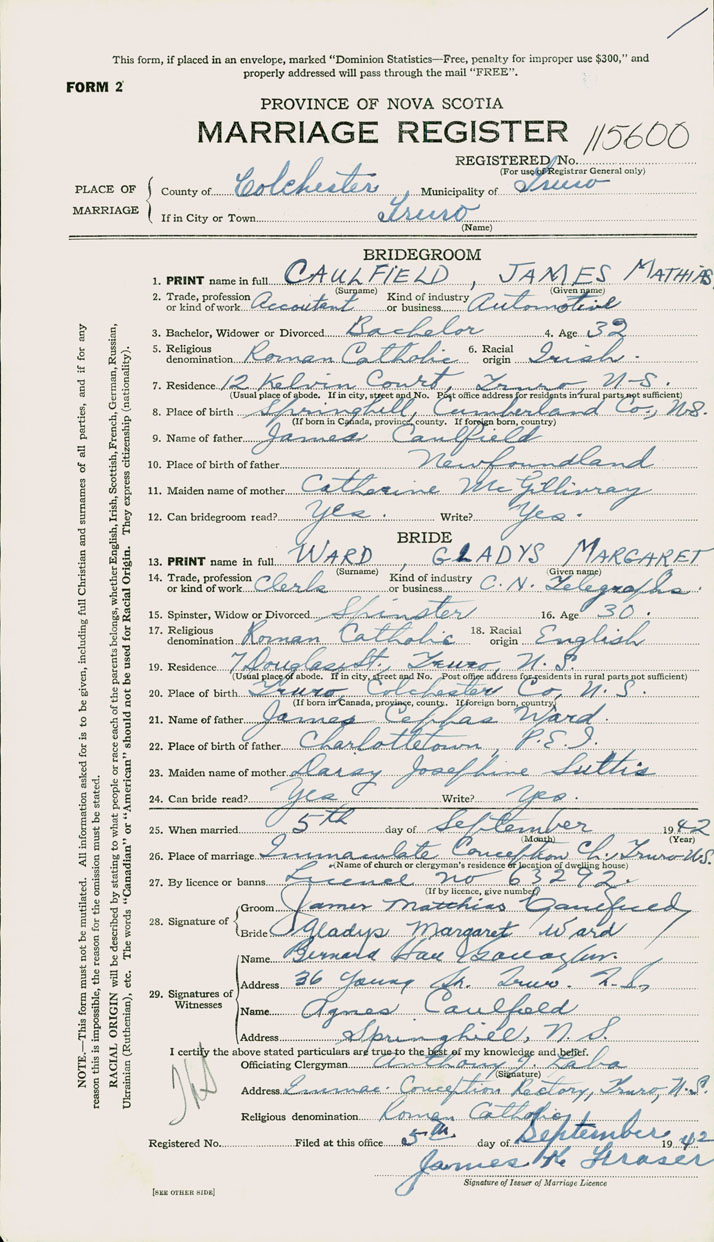 This form, if placed in an envelope, marked "Dominion Statistics—Free, penalty for improper use $300," and
properly addressed will pass through the mail "FREE".
FORM 2
PROVINCE OF NOVA SCOTIA
MARRIAGE REGISTER 115600
REGISTERED No.
(For use of Registrar General only)
PLACE OF MARRIAGE
County of Colchester, Municipality of Truro
If in City or Town Truro
(Name)
BRIDEGROOM
1. PRINT name in full CAULFIELD, JAMES MATHIAS
(Surname) (Given name)
2. Trade, profession or kind of work Accoutant Kind of industry or business Automotive
3. Bachelor, Widower or Divorced Bachelor 4. Age 32
5. Religious denomination Roman Catholic 6. Racial origin Irish.
7. Residence 12 Kelvin Court, Truro N-S.
(Usual place of abode. If in city, street and No. Post office address for residents in rural parts not sufficient)
8. Place of birth Springhill, Cumberland Co., N.S.
(If born in Canada, province, county. If foreign born, country)
9. Name of father James Caulfield
10. Place of birth of father Newfoundland
11. Maiden name of mother Catherine McGillivray
12. Can bridegroom read? Yes. Write? Yes.
BRIDE
13. PRINT name in full WARD, GLADYS MARGARET
(Surname) (Given name)
14. Trade, profession or kind of work Clerk Kind of industry or business C.N. Telegraphs.
15. Spinster, Widow or Divorced Spinster 16. Age 30.
17. Religious denomination Roman Catholic 18. Racial origin English
19. Residence 7 Douglas St., Truro, N.S.
(Usual place of abode. If in city, street and No. Post office address for residents in rural parts not sufficient)
20. Place of birth Truro Colchester Co, N.S.
(If born in Canada, province, county. If foreign born, country)
21. Name of father James Ceppas Ward
22. Place of birth of father Charlottetown, P.E.I.
23. Maiden name of mother Josephine
24. Can bride read? Yes Write? Yes.
25. When married 5th day of September 1942
(Month) (Year)
26. Place of marriage Immaculate Conception Ch., Truro N.S.
(Name of church or clergyman's residence or location of dwelling house)
27. By licence or banns Licence no 63292.
(If by licence, give number)
28. Signature of Groom James Matthias Caulfield
Bride Gladys Margaret Ward
29. Signatures of Witnesses
Name Bernard
Address 36 Young St. Truro. N.S.
Name Agnes Caulfield
Address Springhill, N.S.
I certify the above stated particulars are true to the best of my knowledge and belief.
Officiating Clergyman Anthony J. Laba
(Signature)
Address Immac. Conception Rectory, Truro, N.S.
Religious denomination Roman Catholic
Registered No. Filed at this office 5th day of September 1942
James Fraser
Signature of Issuer of Marriage Licence
[SEE OTHER SIDE]
NOTE.—This form must not be mutilated. All information asked for is to be given, including full Christian and surnames of all parties, and if for any
reason this is impossible, the reason for the omission must be stated.
RACIAL ORIGIN will be described by stating to what people or race each of the parents belongs, whether English, Irish, Scottish, French, German, Russian,
Ukrainian (Ruthenian), etc. The words "Canadian" or "American" should not be used for Racial Origin. They express citizenship (nationality).